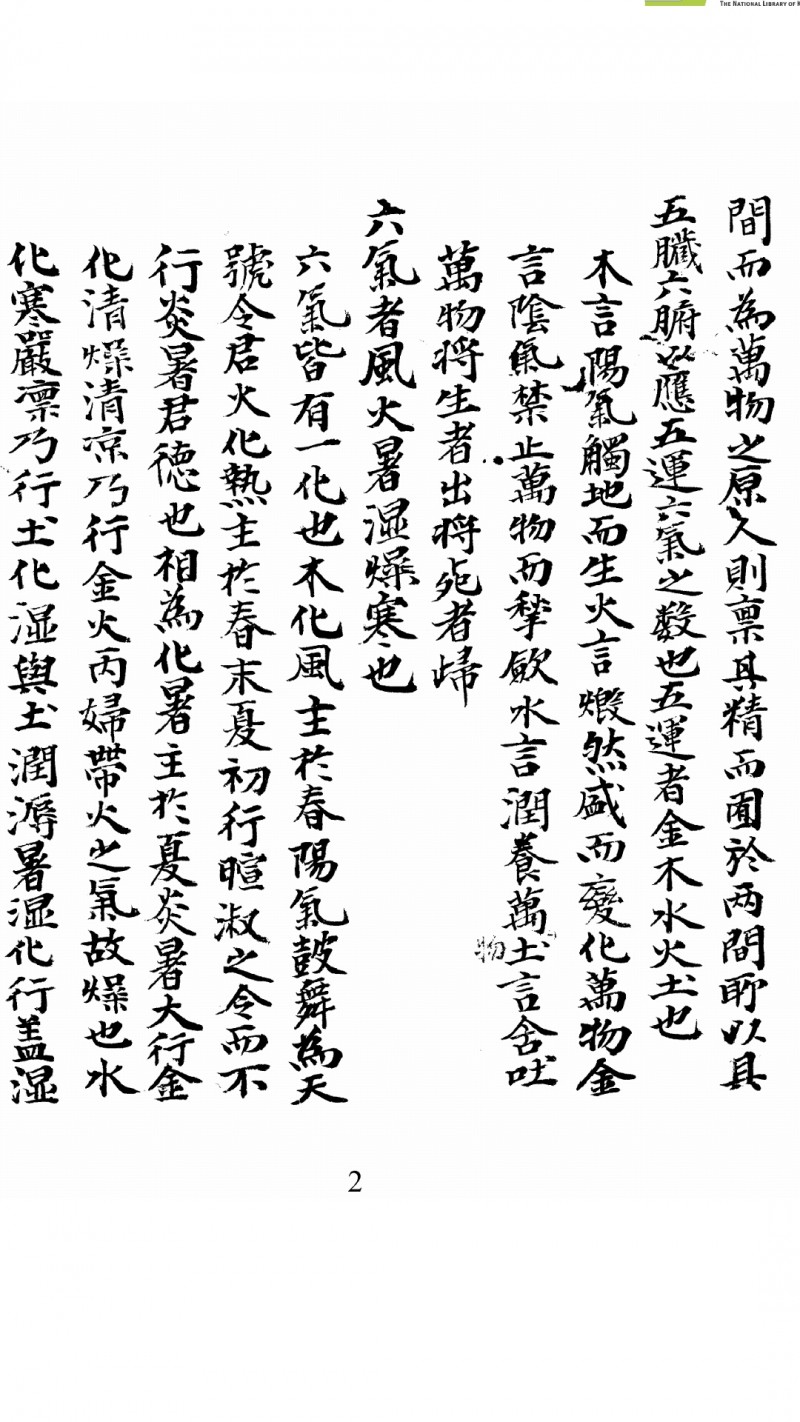 THE NATIONAL LIBRARY OF
間而為萬物之原人則禀其精而囿於两間所以具
五臟六腑以應五運六氣之数也五運者金木水火土也
木言陽氣觸地而生火言燬然盛而變化萬物金
言陰氣禁止萬物而揫歛水言潤養萬物土言含吐
萬物将生者出将死者歸
六氣者風火暑湿燥寒也
六氣皆有一化也木化風主於春陽氣鼓舞為天
號令君火化熱主於春末夏初行暄淑之令而不
行炎暑君德也相為化暑主於夏炎暑大行金
化清燥清凉乃行金火丙婦帶火之氣故燥也水
化寒嚴凛乃行土化湿與土潤溽暑湿化行盖湿
2